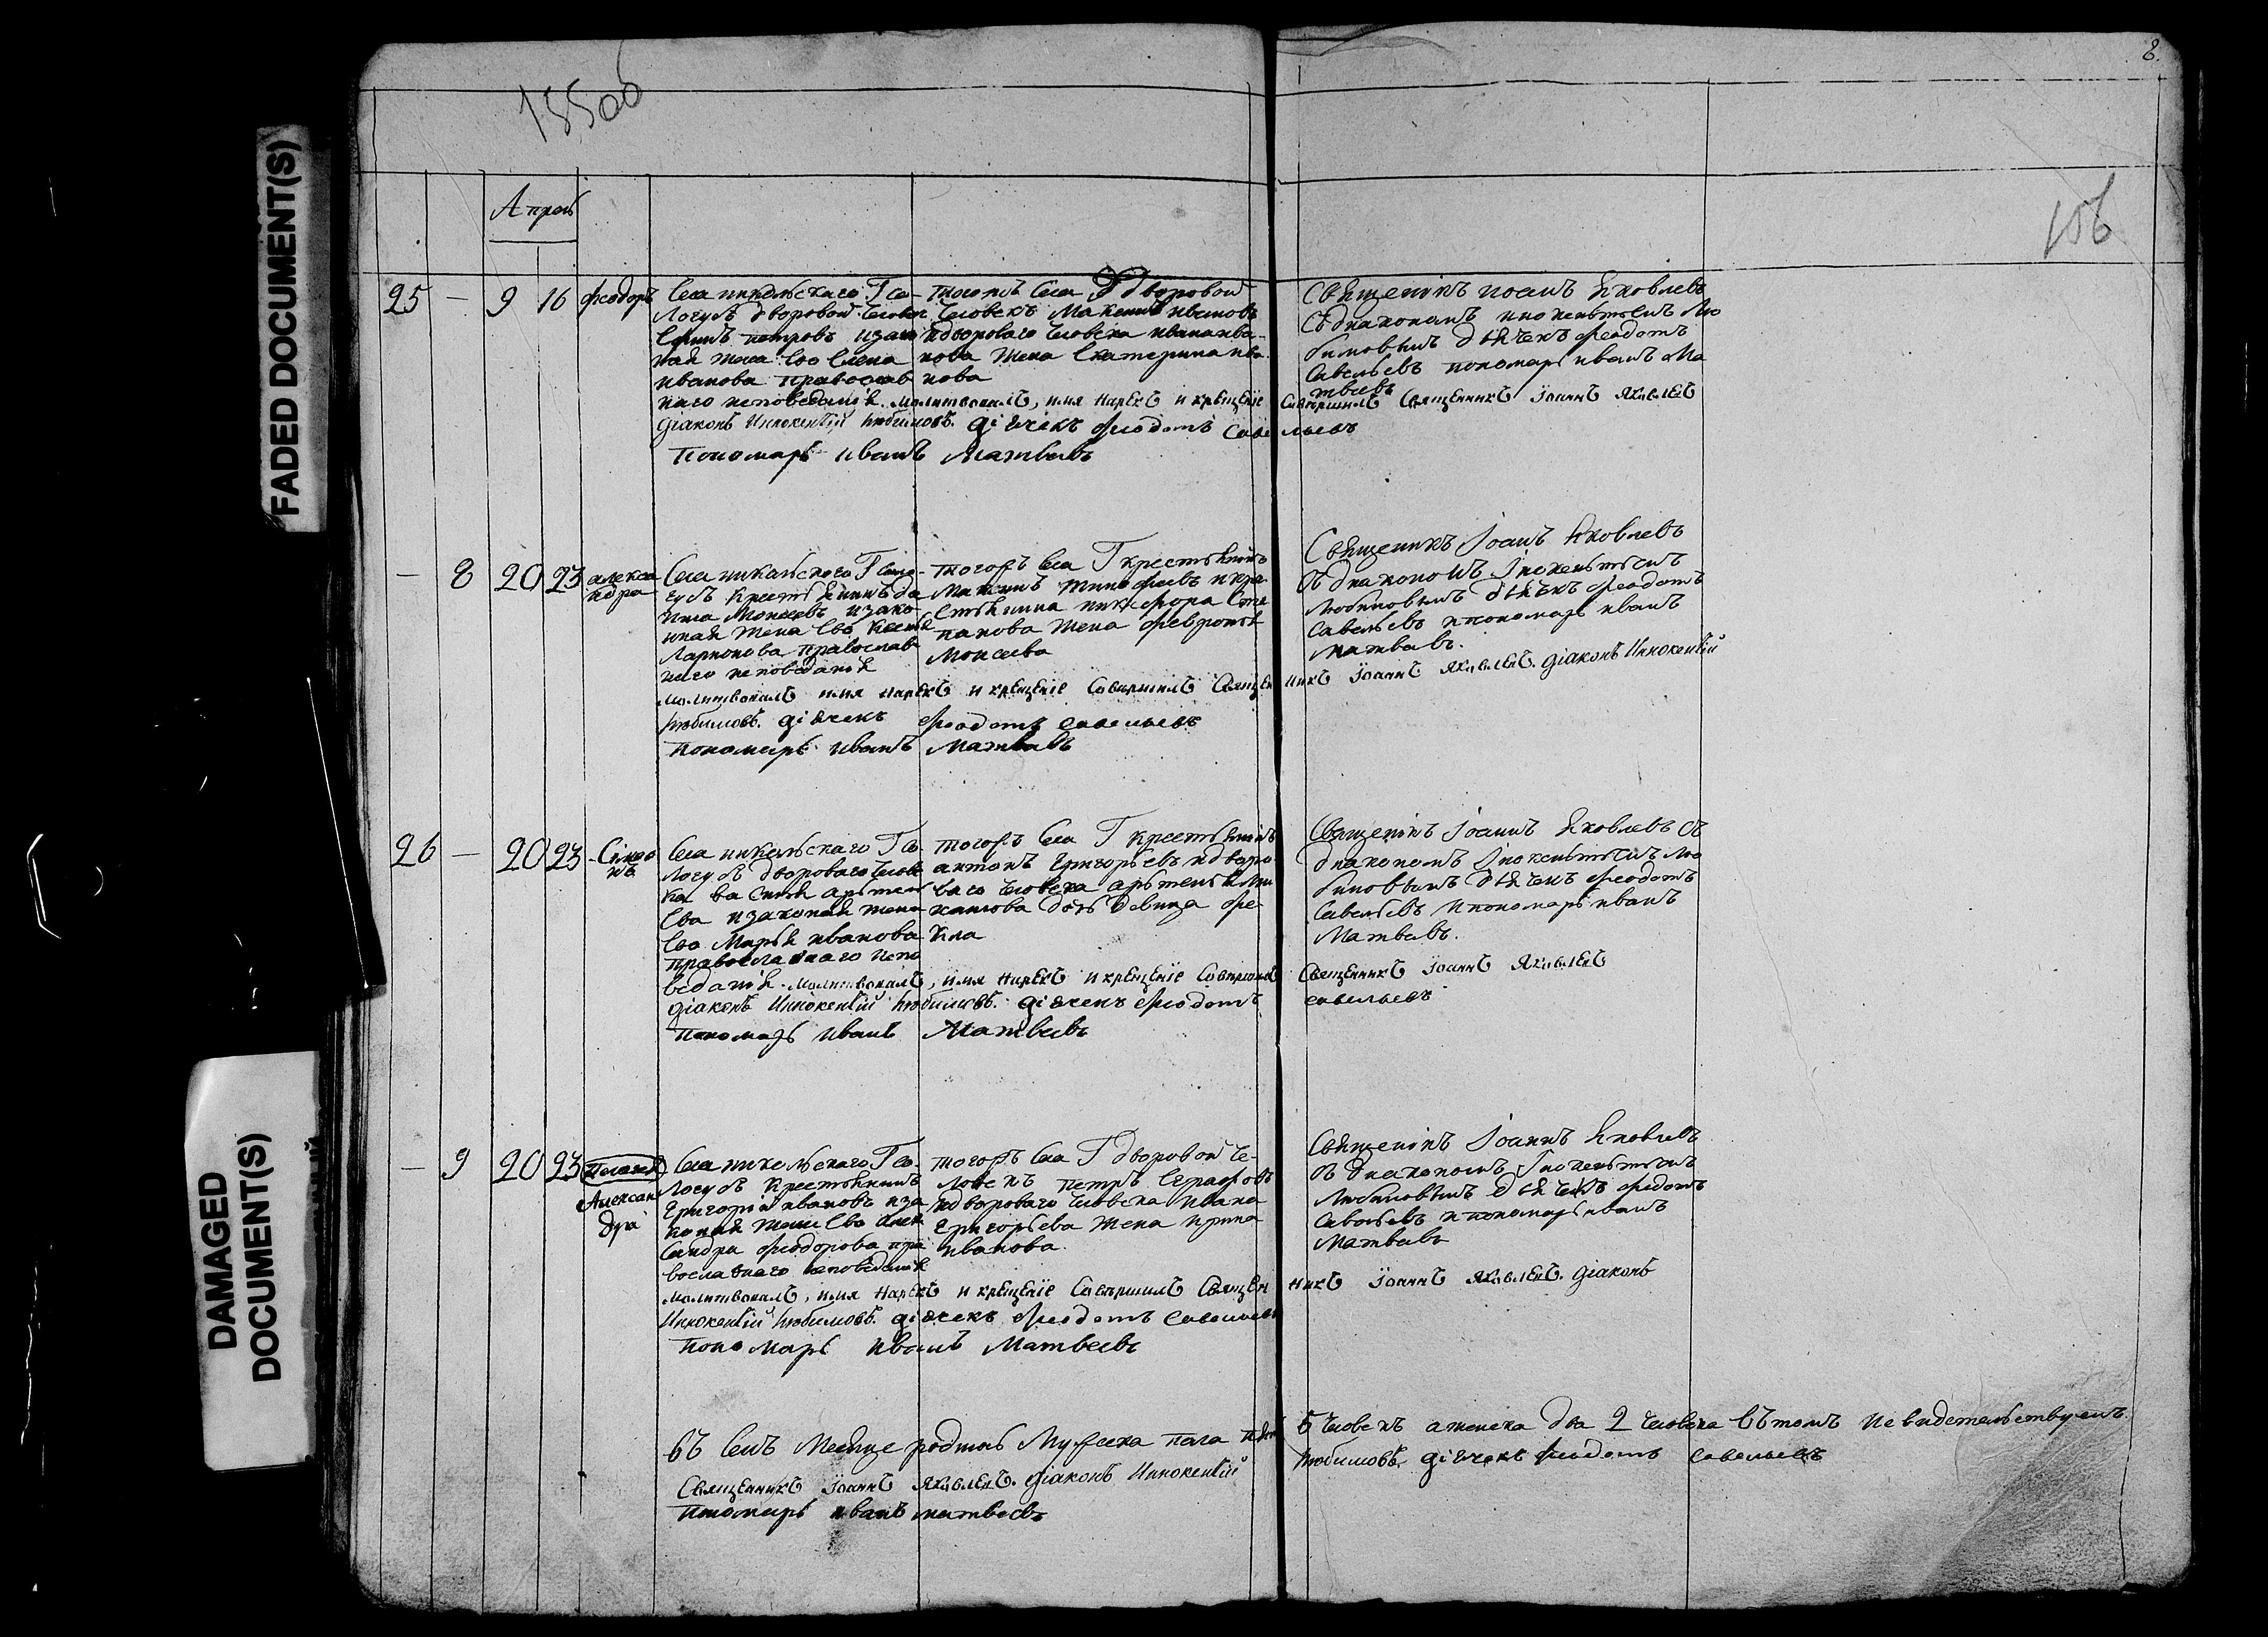 155об
8.
156
Апрель
25 — 9 16 Феодоръ
Села никольскаго Г Со-
логубъ дворовой человек
петровъ изако
ная жена Ево Елена
иванова Православ
наго исповеданія.
тогожъ Села Г дворовой
Человекъ Максимъ ивановъ
идвороваго Человека иванаива-
нова жена Екатерина ива
нова
Священикъ иоанъ Яковлевъ
съдиакономъ инокентьемъ Лю
бимовымъ дьячекъ Феодотъ
Савельевъ пономарь иванъ Ма
твеевъ
Молитвовалъ, имя нарекъ и крещеніе Совершилъ Священникъ Іоаннъ Яковлевъ
Діаконъ Иннокентій Любимовъ. діячекъ Феодотъ Савельевъ
Пономарь иванъ Матвеевъ
— 8 20 23 алекса
ндра
Села никольского Г Соло-
губъ крестьянинъ да
нила Моисеевъ изако-
нная жена Ево
Ларионова Православ
наго исповеданія
тогожъ Села Г крестьянинъ
Максимъ тимофеевъ икре-
стьянина никифора Сте
панова жена Февронья
Моисеева
Священикъ Іоанъ Яковлевъ
съ диакономъ Інокентьемъ
Любимовымъ дьячекъ Феодотъ
Савельевъ ипономарь иванъ
матвевъ.
молитвовалъ имя нарекъ и крещеніе Совершилъ Священникъ Іоаннъ Яковлевъ. Діаконъ Иннокентій
Любимовъ. діячекъ Феодотъ савельевъ
пономарь иванъ Матвевъ
26 — 20 23 Сімео
нъ
Села никольскаго Г Со
логубъ двороваго челове
ка василья артемь
ева изаконая жена
Ево Марья иванова
православнаго испо
веданія.
тогожъ Села Г крестьянинъ
антонъ Григорьевъ идворо-
ваго человека артемья
дочь девица Фе-
кла
Священікъ Іоаннъ Яковлевъ съ
диакономъ Інокентьемъ Лю
бимовымъ дьячекъ Феодотъ
Савельевъ ипономарь иванъ
Матвевъ.
Молитвовалъ, имя нарекъ и крещеніе Совершилъ Священникъ Іоаннъ Яковлевъ
діаконъ Иннокентій Любимовъ. діячекъ Феодотъ савельевъ
пономарь иванъ Матвеевъ
— 9 20 23 Пелагея
Алексан
дра
Села никольскаго Г Со-
логубъ Крестьянинъ
Григорій ивановъ изa
коная жена Ево Алек
сандра Феодорова пра
вославнаго исповеданія
тогожъ Села Г дворовой Че-
ловекъ петръ Ееграфовъ
идвороваго человека ивана
Григорьева жена ирина
иванова.
Священікъ Іоаннъ Яковлевъ
съ диакономъ Інокентьемъ
Любимовымъ дьячекъ Феодотъ
Савельевъ ипономарь иванъ
Матвевъ
молитвовалъ, имя нарекъ и крещеніе Совершилъ Священникъ Іоаннъ Яковлевъ. Діаконъ
Иннокентій Любимовъ. діячекъ Феодотъ Савельевъ
Пономарь иванъ Матвеевъ
Въ Семъ Месяце родились Мужеска пола 5 человекъ аженска два 2 человека Въ томъ
Священникъ Іоаннъ Яковлевъ. Діаконъ Иннокентій Любимовъ. діячекъ Феодотъ Савельевъ
Пономарь иванъ матвеевъ
FADED DOCUMENT(S)
DAMAGED
DOCUMENT(S)